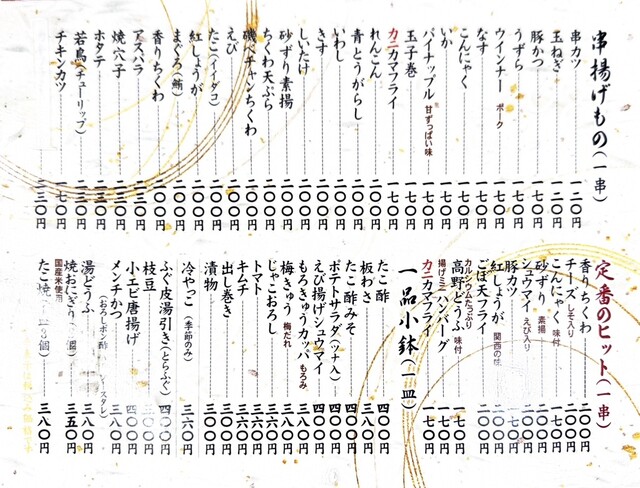 串揚げもの(一串)
串カツ 一二〇円
玉ねぎ 一二〇円
豚かつ 一七〇円
うずら 一七〇円
ウインナー ポーク 一七〇円
なす 一七〇円
こんにゃく 一七〇円
いか 一七〇円
パイナップル 甘ずっぱい味 一七〇円
玉子巻 一七〇円
カニカマフライ 一七〇円
れんこん 二〇〇円
青とうがらし 二〇〇円
いわし 二〇〇円
きす 二〇〇円
しいたけ 二〇〇円
砂ずり素揚 二〇〇円
ちくわ天ぷら 二〇〇円
磯ベチャンちくわ 二〇〇円
えび 二〇〇円
たこ(イイダコ) 二〇〇円
紅しょうが 二〇〇円
まぐろ(鮪) 二〇〇円
香りちくわ 二〇〇円
アスパラ 二三〇円
焼穴子 二三〇円
ホタテ 二三〇円
若鳥(チューリップ) 一七〇円
チキンカツ 二三〇円
定番のヒット(一串)
香りちくわ 二〇〇円
チーズ しそ入り 二〇〇円
こんにゃく 味付 一七〇円
砂ずり 素揚 二〇〇円
シュウマイ えび入り 二〇〇円
豚カツ 一七〇円
紅しょうが 関西の味 二〇〇円
ごぼ天フライ 二〇〇円
高野どうふ 味付 カルシウムたっぷり 一七〇円
揚げミニハンバーグ 一七〇円
カニカマフライ 一七〇円
一品小鉢(一皿)
たこ酢 四〇〇円
板わさ 三八〇円
たこ酢みそ 四〇〇円
ポテトサラダ(ツナ入) 四〇〇円
えび揚げシュウマイ 四〇〇円
もろきゅうカッパ もろみ 三八〇円
梅きゅう 梅だれ 三八〇円
じゃこおろし 三八〇円
トマト 三六〇円
キムチ 三六〇円
出し巻き 三八〇円
漬物 三〇〇円
冷やっこ(季節のみ) 三六〇円
ふぐ皮湯引き(とらふぐ) 四〇〇円
枝豆 三八〇円
小エビ唐揚げ 四〇〇円
メンチかつ(おろしポン酢 ースタレ) 三八〇円
湯どうふ 三八〇円
焼おにぎり 国産米使用 三五〇円
たこ焼 三八〇円